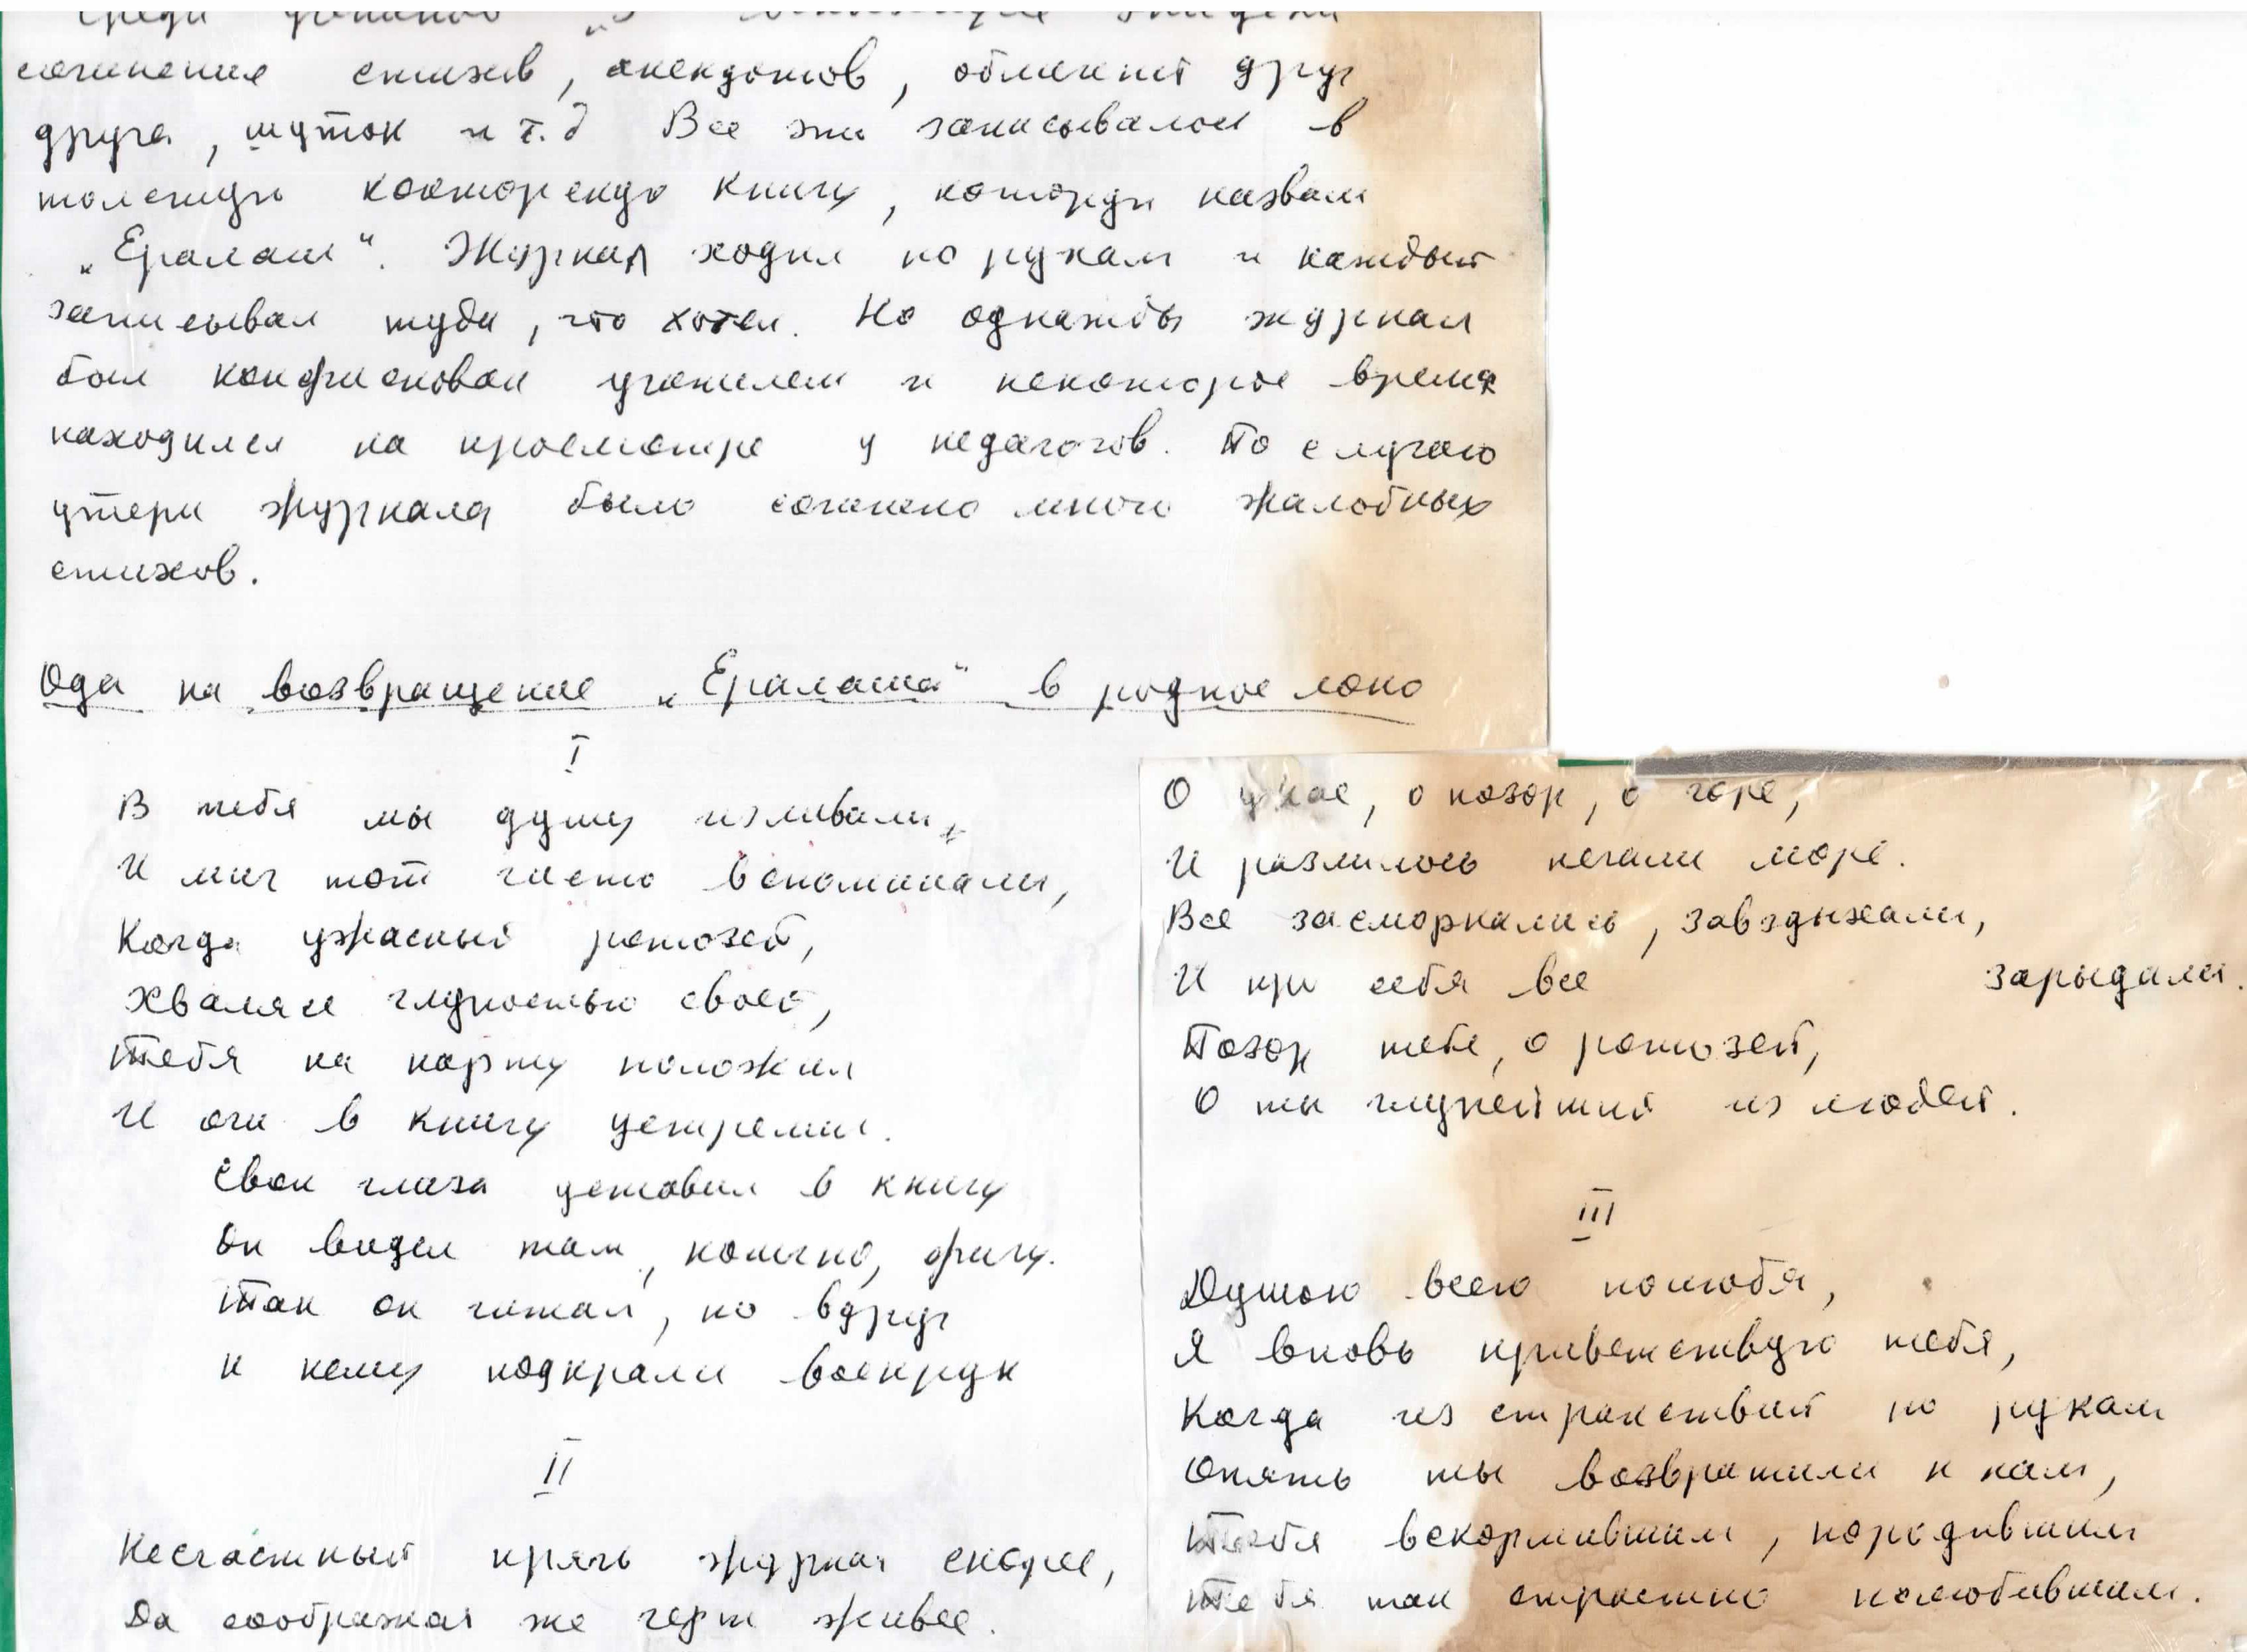 среди учеников „З
сочинение стихов, анекдотов, обмекист друг
друга, шуток и т.д Все это записывалось в
толстую конторскую книгу, которую назвали
„Ералаш“. Журнал ходил по рукам и каждый
записывал туда, что хотел. Но однажды журнал
был конфискован учителем и некоторое время
находился на просмотре у педагогов. По случаю
утери журнала было сочинено много жалобных
стихов.
Ода на возвращение „Ералаша“ в родное лоно
I
В тебя мы душу изливали,
И миг тот часто вспоминали,
Когда ужасный ротозей,
Хваляся глупостью своей,
Тебя на парту положил
И очи в книгу устремил.
Свои глаза уставил в книгу
Он видел там, конечно, фигу.
Так он читал, но вдруг
К нему подкрался военрук
II
Несчастный прячь журнал скорее,
Да соображай же черт живее.
О ужас, о позор, о горе,
И разлилось печали море.
Все засморкались, завздыхали,
И про себя все зарыдали.
Позор тебе, о ротозей,
О ты глупейший из людей.
III
Душою всею полюбя,
Я вновь приветствую тебя,
Когда из странствий по рукам
Опять ты возвратился к нам,
Тебя вскормившим, породившим
Тебя так страстно полюбившим.